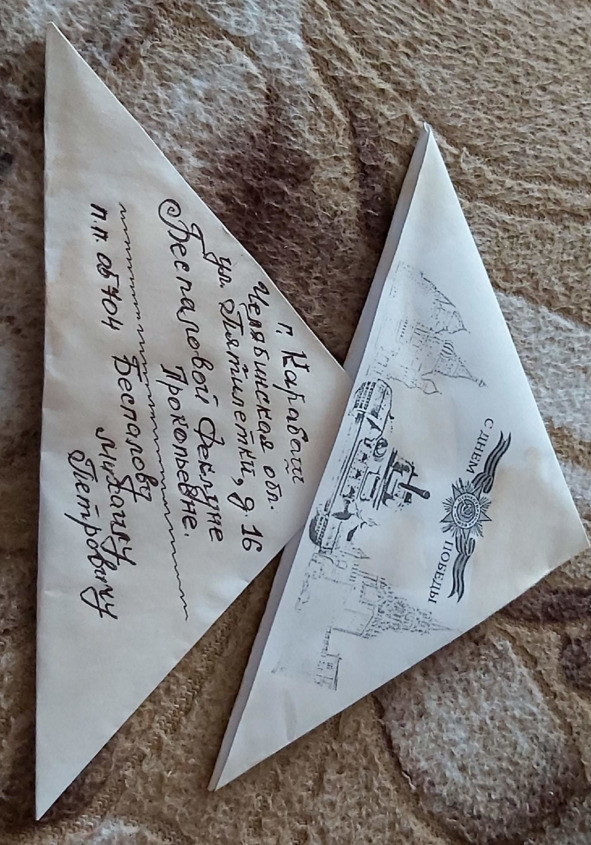 г. Карабаш
Челябинская обл.
ул. Пятилетки, д. 16
Беспаловой Фекляне
Прокопьевне.
п.п. 06404 Беспалову
Михаилу
Петровичу
С ДНЕМ ПОБЕДЫ